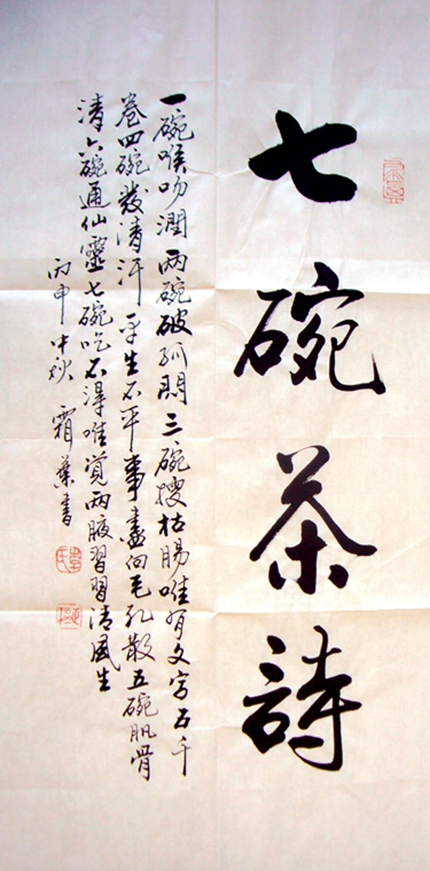 七碗茶詩
一碗喉吻潤两碗破孤悶三碗搜枯腸唯有文字五千
卷四碗發清汗平生不平事盡向毛孔散五碗肌骨
清六碗通仙靈七碗吃不得唯覚两腋習習清風生
丙申中秋 霜葉書